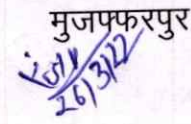 मुजफ्फरपुर
रंजन
26/3/22